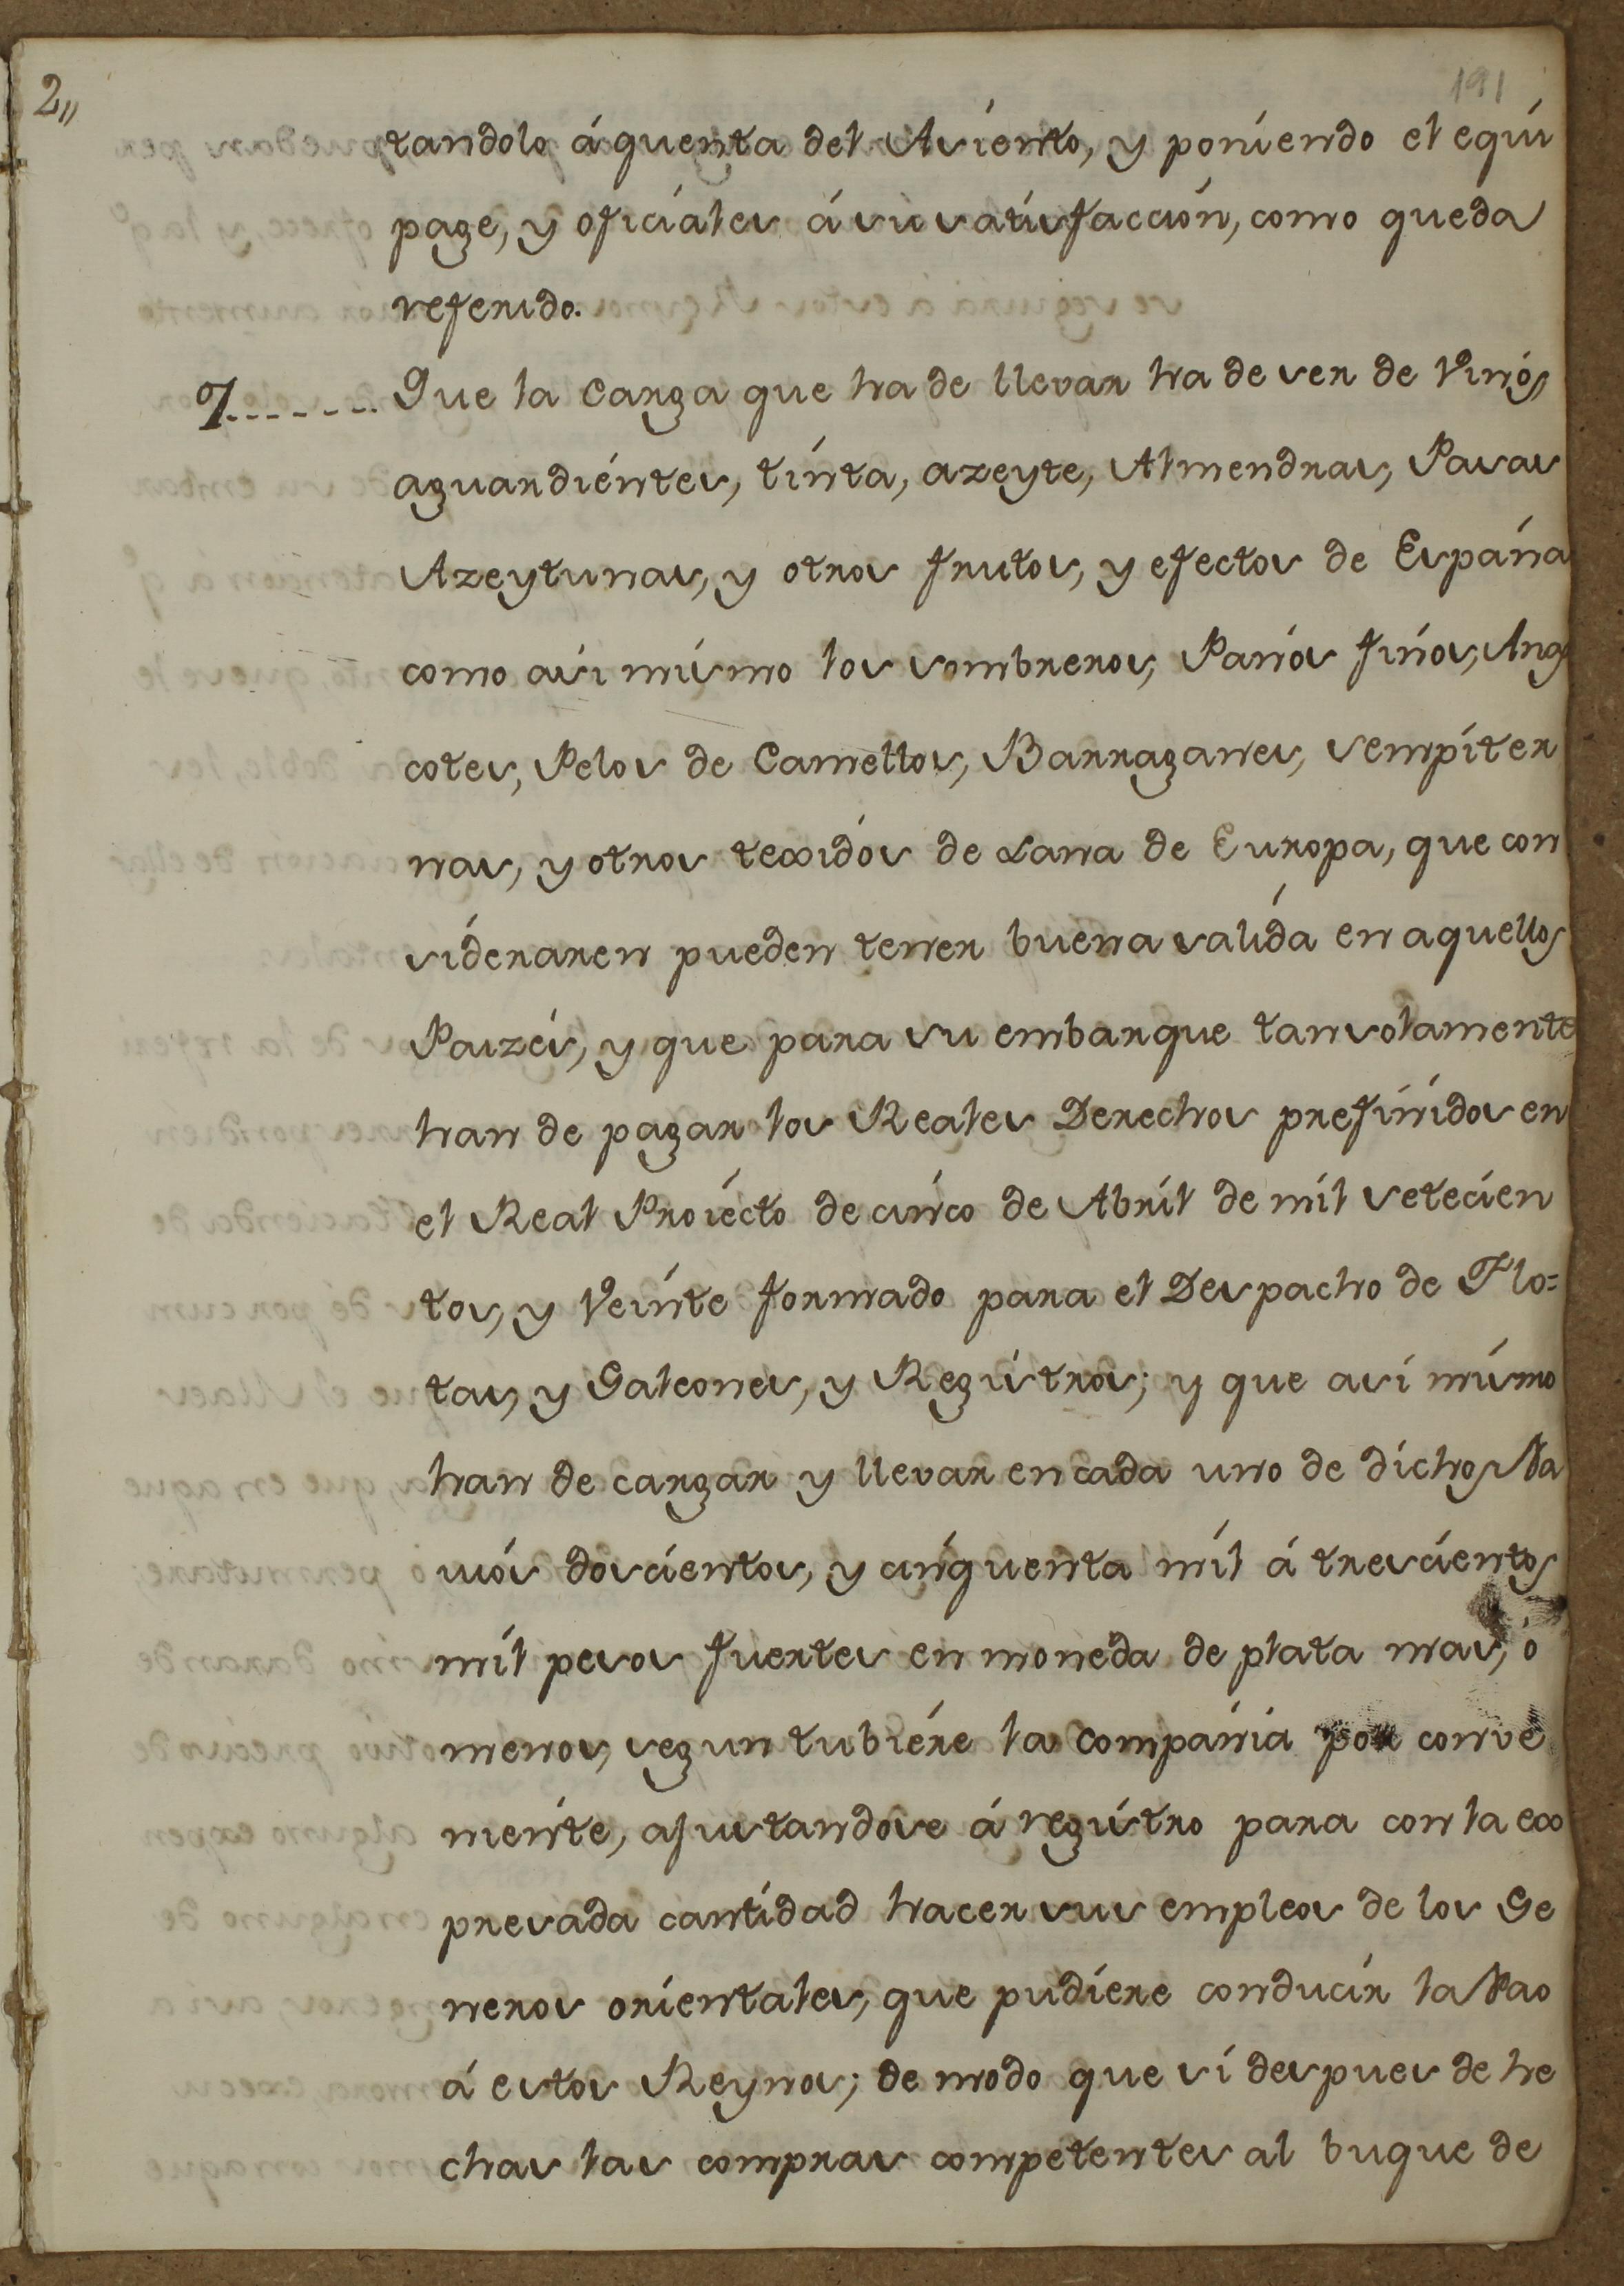 2,,
191
tandolo á quenta del Asiento, y poniendo el equi
page, y oficiales á su satisfacción, como queda
referido.
7....... Que la Carga que ha de llevar ha de ser de Vinos,
aguardiéntes, tinta, azeyte, Almendras, Pasas
Azeytunas, y otros frutos, y efectos de España
como asi mismo los sombreros, Paños finos, Ang
cotes, Pelos de Camellos, Barraganes, sempiter
nas, y otros texidos de Lana de Europa, que con
sideraren pueden tener buena salida en aquellos
Paizes, y que para su embarque tansolamente
han de pagar los Reales Derechos prefinidos en
el Real Proiécto de cinco de Abril de mil setecien
tos, y Veinte formado para el Despacho de Flo=
tas, y Galeones, y Registros; y que asi mismo
han de cargar y llevar en cada uno de dichos Na
vios doscientos, y cinquenta mil á trescientos
mil pesos fuertes en moneda de plata mas, ó
menos, segun tubiére la Compañia por conve
niente, ajustandose á registro para con la ex
presada cantidad hacer sus empleos de los Ge
neros orientales, que pudiere conducir la Nao
á estos Reynos; de modo que si despues de he
chas las compras competentes al buque de